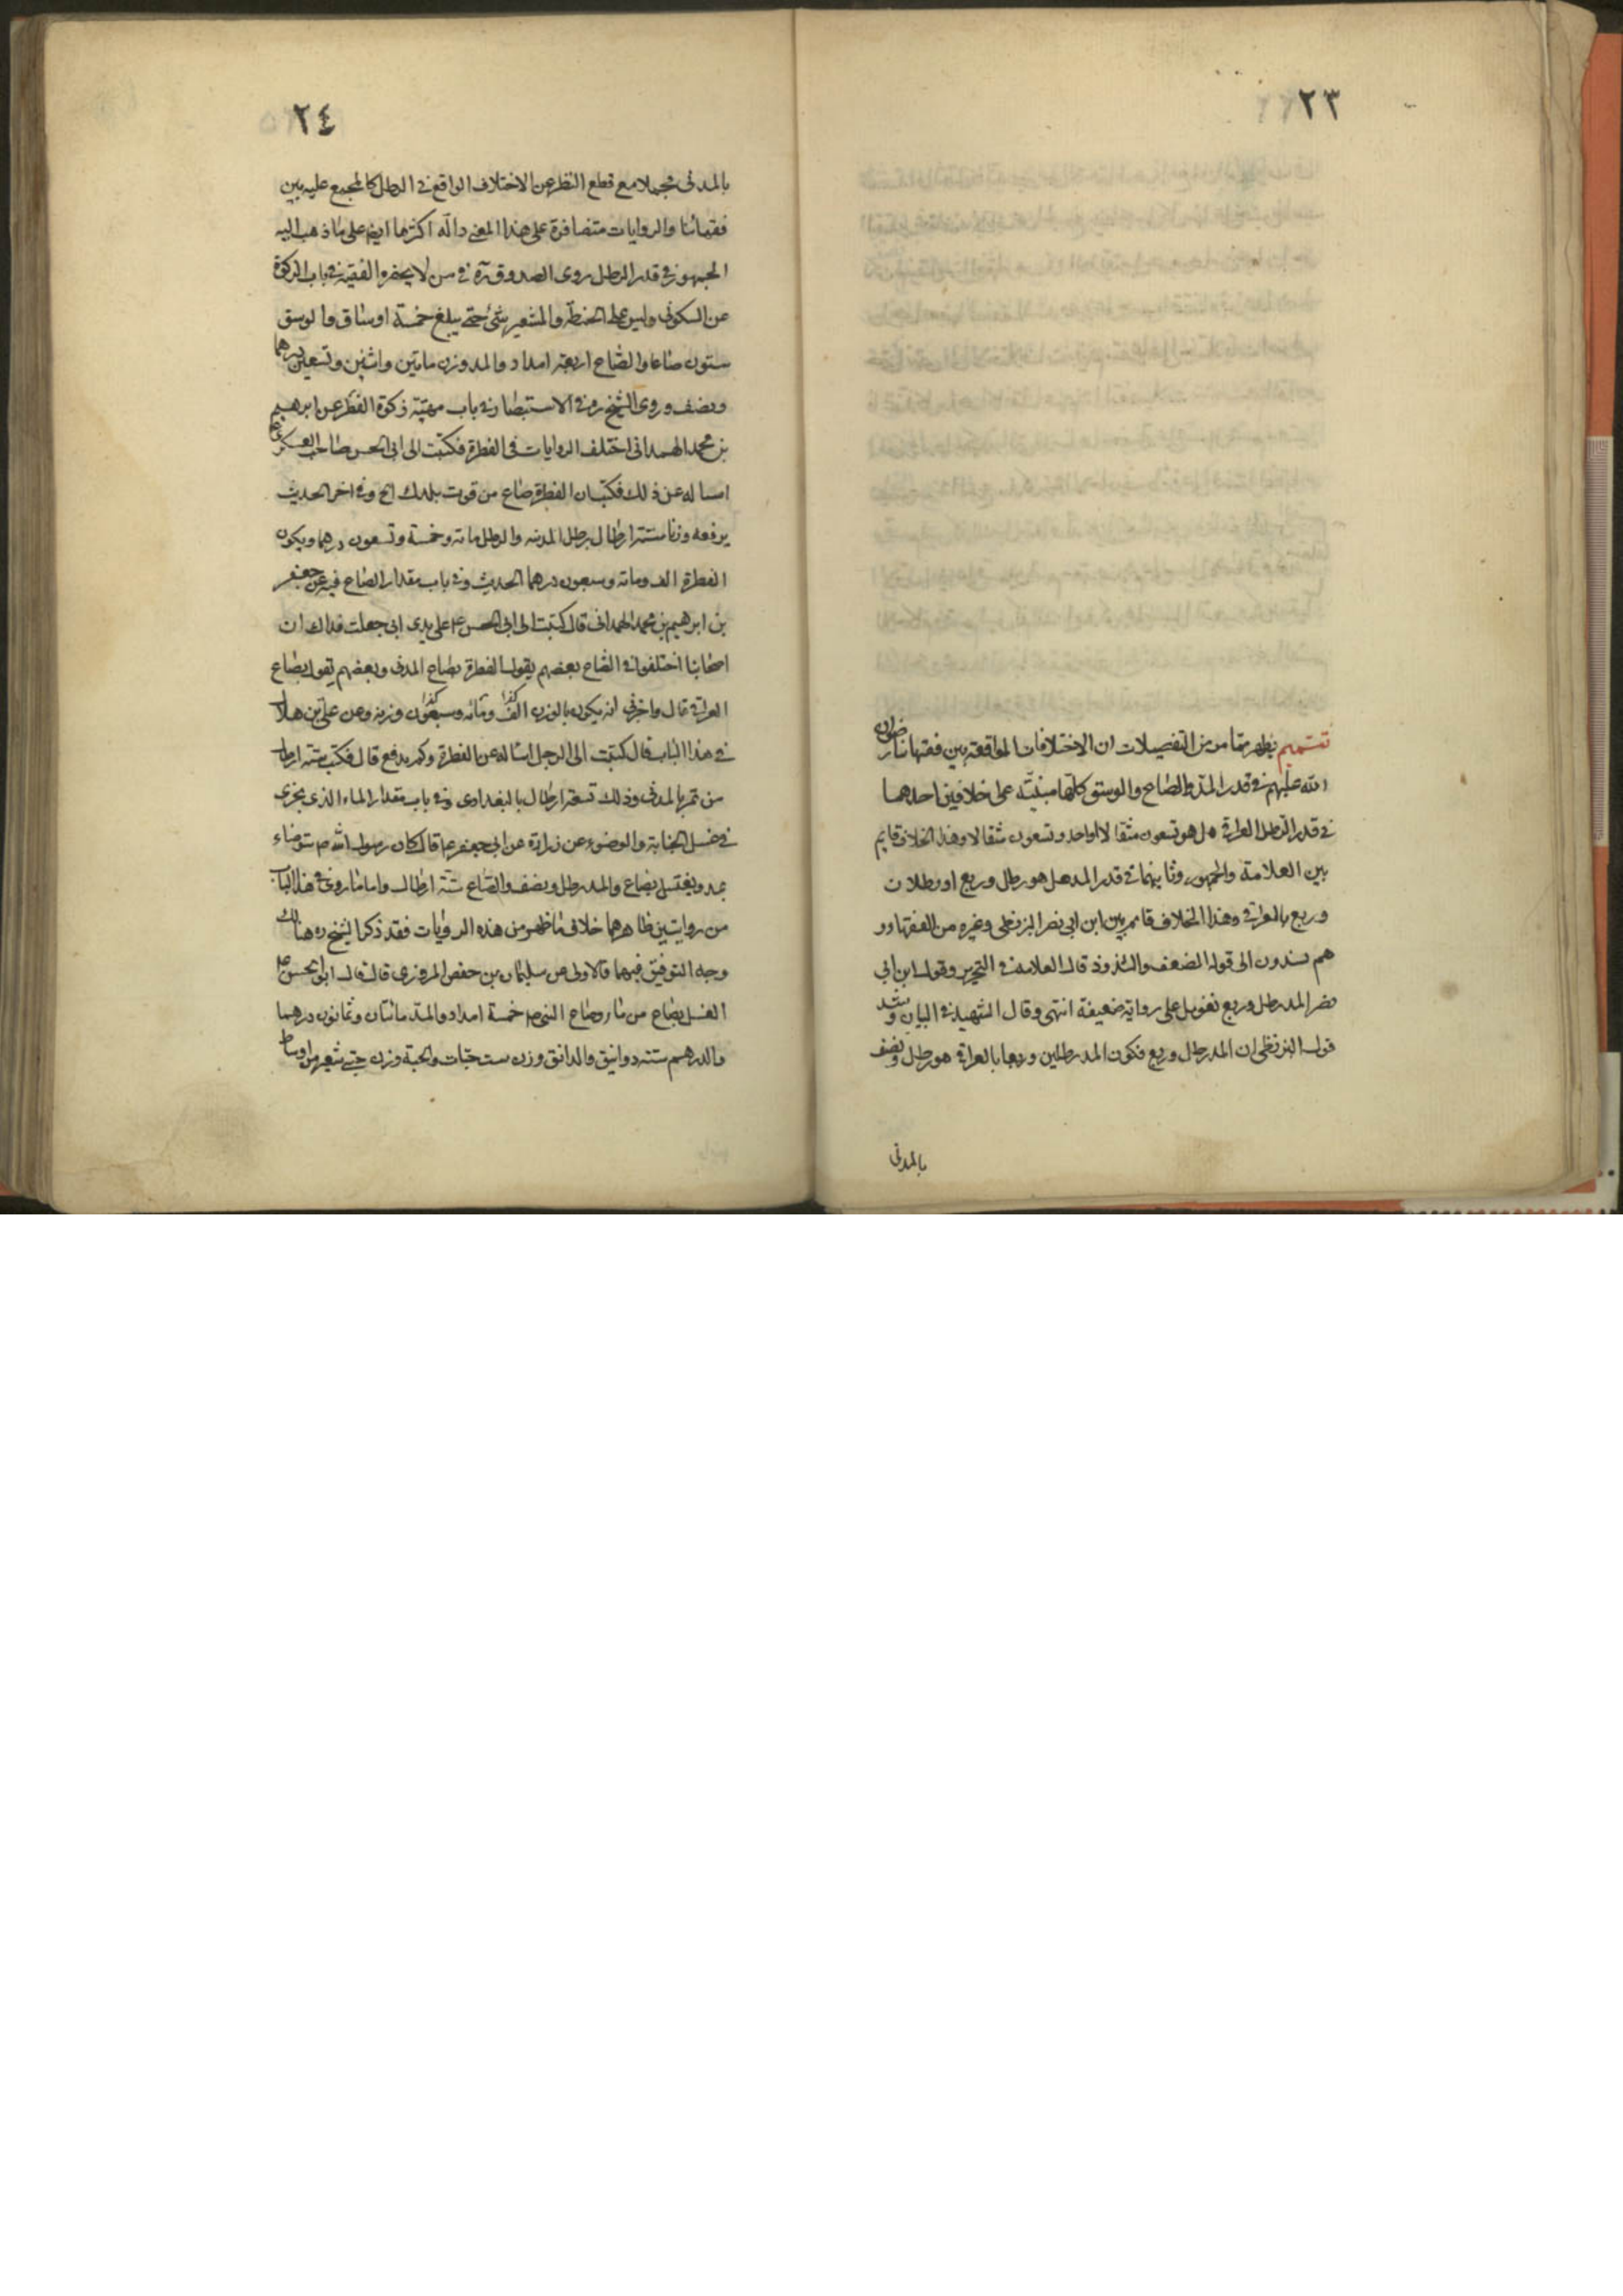 ٢٣
تتميم يظهر مما مر من التفصيلات ان الاختلافات الواقعة بين فقهائنا رضوان
الله عليهم في قدر المد والصاع والوسق كلها مبنية على خلافين احدهما
في قدر الرطل العراقي هل هو تسعون مثقالا او احد وتسعون مثقالا وهذا الخلاف قايم
بين العلامة والجمهور وثانيهما في قدر المد هل هو رطل وربع او رطلان
وربع بالعراقي وهذا الخلاف قائم بين ابن ابي نصر البزنطي وغيره من الفقهاء و
هم يسندون الى قوله الضعف والشذوذ قال العلامة في التحرير وقول ابن ابي
نصر المد رطل وربع تعويل على رواية ضعيفة انتهى وقال الشهيد في البيان وشذ
قول البزنطي ان المد رطل وربع فكون المد رطلين وربعا بالعراقي هو رطل ونصف
بالمدني
٢٤
بالمدني مجملا مع قطع النظر عن الاختلاف الواقع في الرطل كالمجمع عليه بين
فقهائنا والروايات متضافرة على هذا المعنى دالة اكثرها ايضا على ما ذهب اليه
الجمهور في قدر الرطل روى الصدوق ره في من لا يحضره الفقيه في باب الزكوة
عن السكوني وليس على الحنطة والشعير شئ حتى يبلغ خمسة اوساق والوسق
ستون صاعا والصاع اربعة امداد والمد وزن مايتين واثنين وتسعين درهما
ونصف وروى الشيخ ره في الاستبصار في باب مهية زكوة الفطر عن ابرهيم
بن محمد الهمداني اختلف الروايات في الفطرة فكتبت الى ابي الحسن صاحب العسكر ع
اساله عن ذلك فكتب ان الفطرة صاع من قوت بلدك الخ وفي اخر الحديث
يرفعه وزنا ستة ارطال برطل المدينه والرطل مائة وخمسة وتسعون درهما ويكون
الفطرة الف ومائة وسبعون درهما الحديث وفي باب مقدار الصاع فيه عن جعفر
بن ابرهيم بن محمد الهمداني قال كتبت الى ابي الحسن ع على يدي ابي جعلت فداك ان
اصحابنا اختلفوا في الصاع بعضهم يقول الفطرة بصاع المدني وبعضهم يقول بصاع
العراقي قال واخبرني انه يكون بالوزن الف ومائه وسبعون وزنه وعن علي بن هلال
في هذا الباب قال كتبت الى الرجل اساله عن الفطرة وكم يدفع قال فكتب ستة ارطال
من تمر بالمدني وذلك تسعة ارطال بالبغدادي وفي باب مقدار الماء الذي يجزي
في غسل الجنابة والوضوء عن زرارة عن ابي جعفر ع قال كان رسول الله ص يتوضاء
بمد ويغتسل بصاع والمد رطل ونصف والصاع ستة ارطال واما ما روي في هذا الباب
من روايتين ظاهرهما خلاف ما ظهر من هذه الروايات فقد ذكر الشيخ ره هنالك
وجه التوفيق فيهما فالاولى عن سليمان بن حفص المروزي قال قال ابو الحسن ع
الغسل بصاع من ماء وصاع النبي ص خمسة امداد والمد مائتان وثمانون درهما
والدرهم ستة دوانيق والدانق وزن ست حبات والحبة وزن حبتي شعير من اوساط